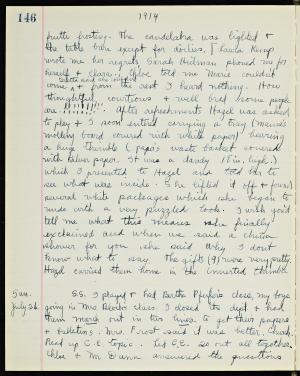 146 1914
putte frosting. The candelabra was lighted &
the table bare except for doilies. Paula Kemp
wrote me her regrets, Sarah Hillman phoned me for
herself & Clara. Chloe told me Marie couldn't
come & from the rest I heard nothing. How
thoughtful, courteous & well bred some people
are!!!!!!!! After refreshments Hazel was asked
to play & I soon entered carrying a tray (Maud's
molding board covered with white paper) bearing
a huge thimble (papa's waste basket covered
with silver paper. It was a dandy 18 in. high.)
which I presented to Hazel and told her to
see what was inside. She lifted it off & found
several white packages which she began to
undo with a very puzzled look. I wish you'd
tell me what this means she finally
exclaimed and when we said a kitchen
shower for you she said Why I don't
know what to say. The gifts (9) were very pretty.
Hazel carried them home in the inverted thimble.
Sun.
July 26.
S.S. I played & had Bertha P's close, my boys
going in Mrs. Clark's class. I closed the dept & had
them march out in two lines to get their papers
& bulletins. Mrs. Frost said it was better. Church.
Read up C.E. topic. Led C.E. so out all together.
Chloe & Mr. Dunn answered the questions